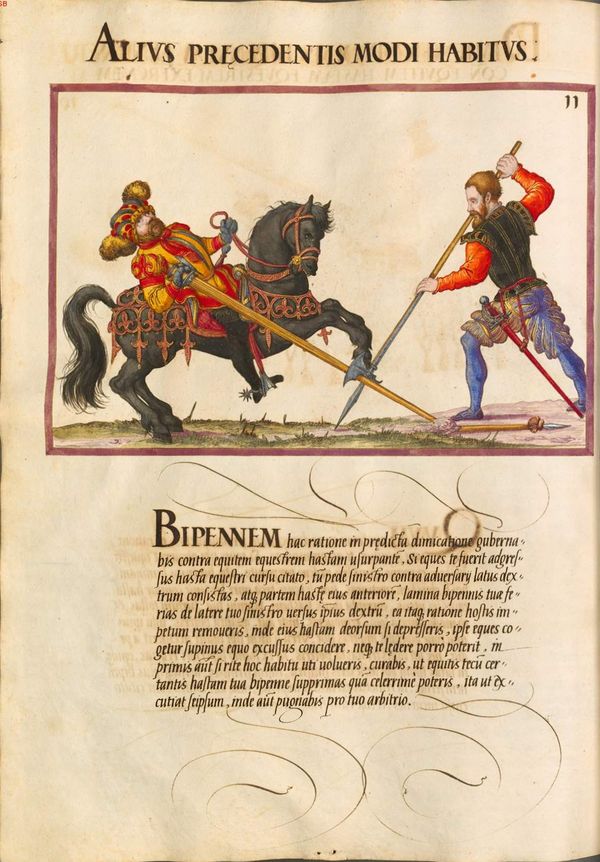 SB
ALIVS PRĘCEDENTIS MODI HABITVS.
11
BIPENNEM hac ratione in prędicta dimicatione guberna-
bis contra equitem equestrem hastam usurpantē, Si eques te fuerit adgres-
sus hasta equestri cursu citato, tu pede sinistro contra adversarij latus dex-
trum consistas, atq; partem hastę eius anteriore, lamina bipennis tua fe-
rias de latere tuo sinistro versus ipsius dextrū, ea itaq; ratione hostis im-
petum removeris, inde eius hastam deorsum si depresseris, ipse eques co-
getur supinus equo excussus concidere, neq; te lędere porro poterit, in
primis aūt si rite hoc habitu uti volueris, curabis, ut equitis tecū cer-
tantis hastam tua bipenne supprimas quā celerrimè poteris, ita ut ex-
cutiat seipsum, inde aūt pugnabis pro tuo arbitrio.